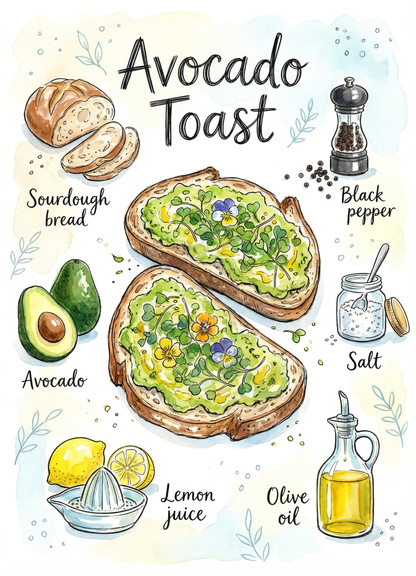 Avocado
Toast
Sourdough
bread
Black
pepper
Avocado
Salt
Lemon
juice
Olive
oil